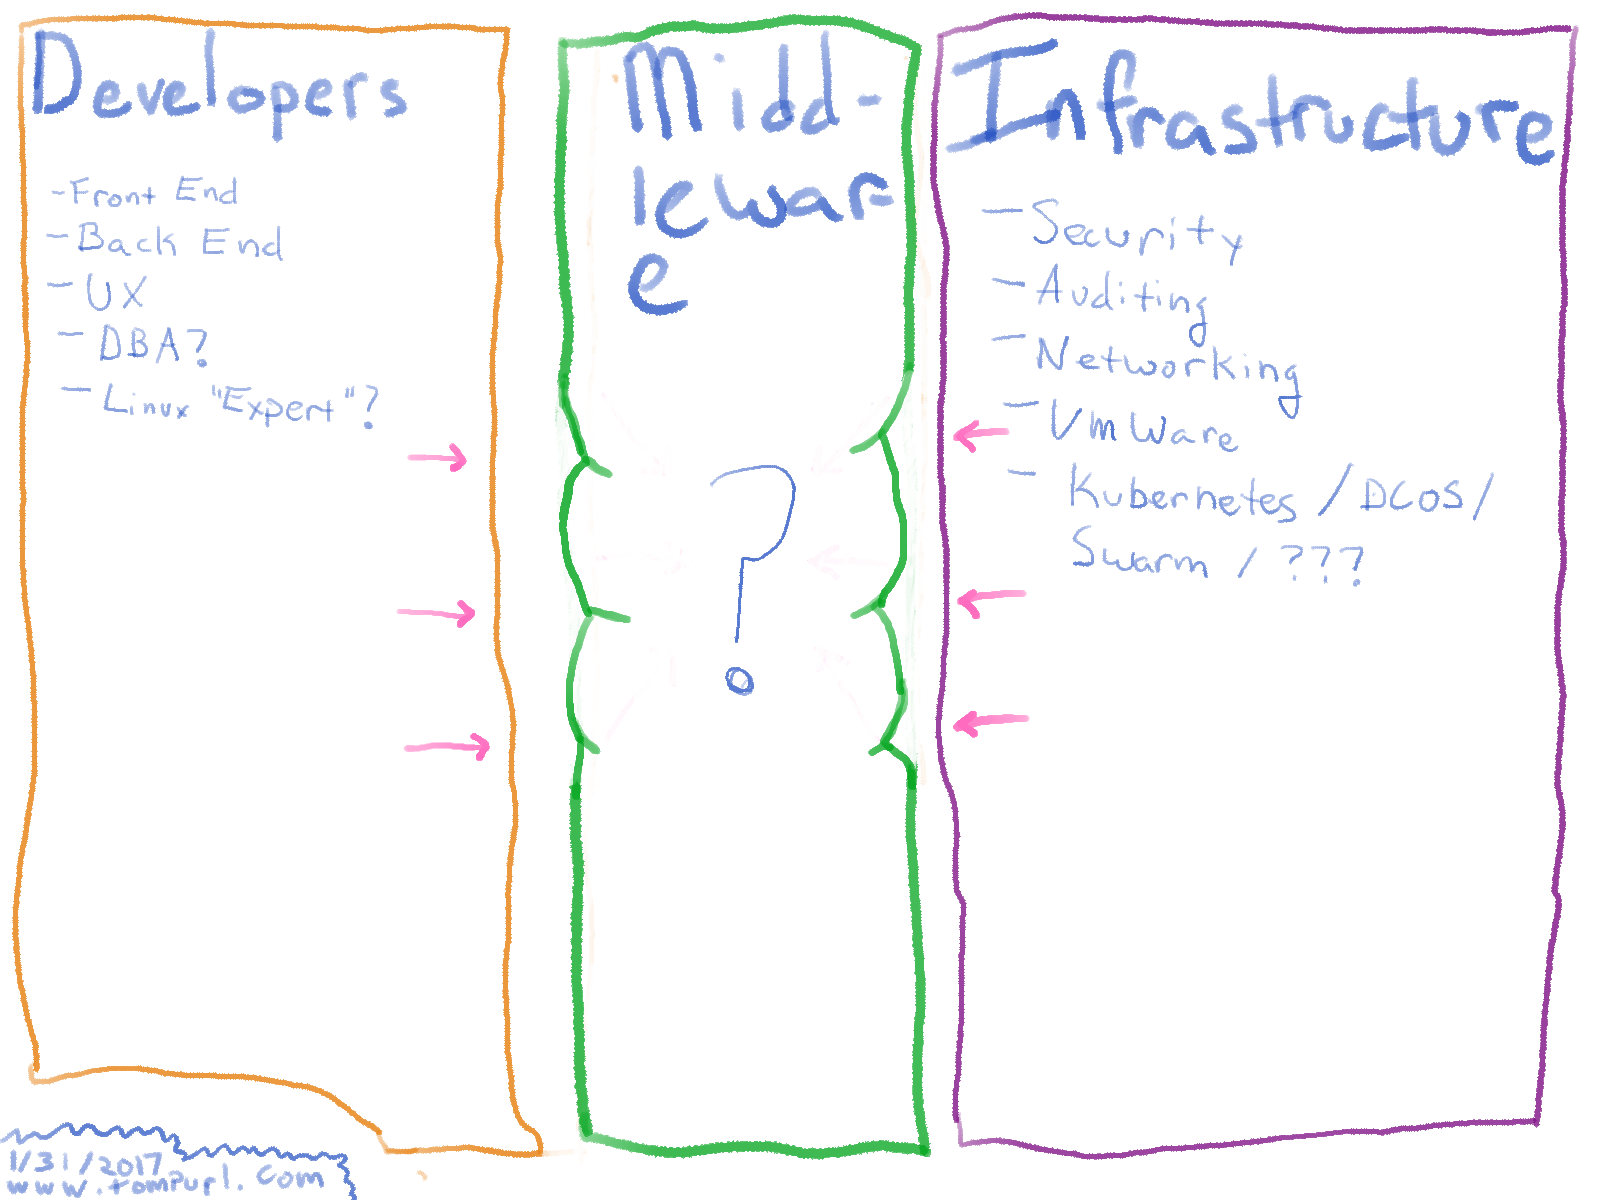 Developers
-Front End
-Back End
-UX
-DBA?
-Linux "Expert"?
Midd-
lewar
e
?
Infrastructure
-Security
-Auditing
-Networking
-VmWare
-Kubernetes / DCOS /
Swarm / ???
1/31/2017
www.tompurl.com